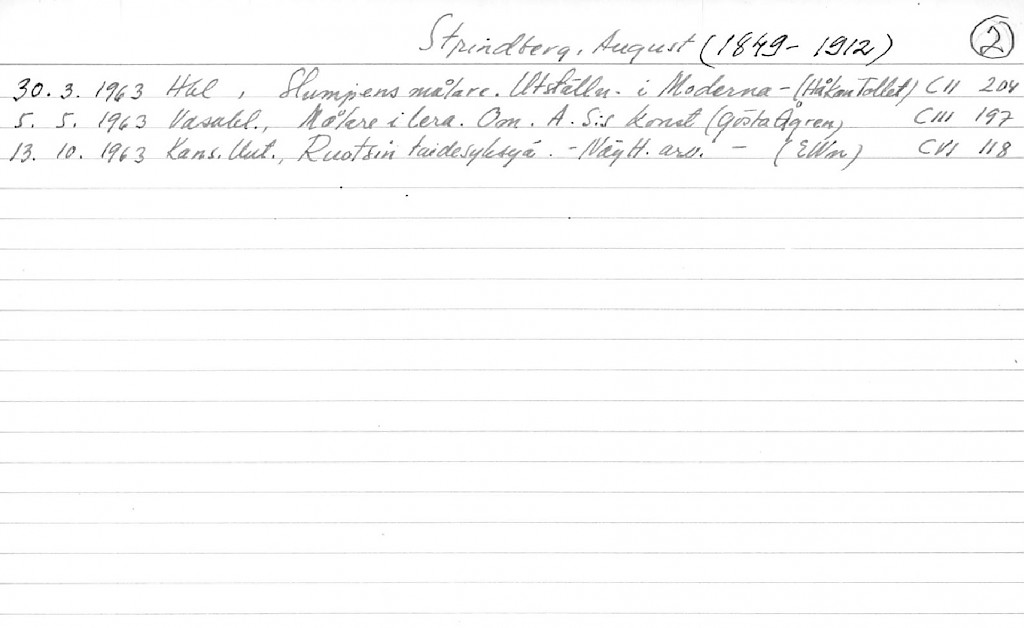 Strindberg, August (1849-1912) 2
30. 3. 1963 Hbl, Slumpens målare. Utställn. i Moderna - (Håkan Tollet) CII 204
5. 5. 1963 Vasabl., Målare i lera. Om. A. S:s konst (Gösta Ågren) CIII 197
13. 10. 1963 Kans. Uut., Ruotsin taidesyksyä. - Näytt. arv. - (EWn) CVI 118